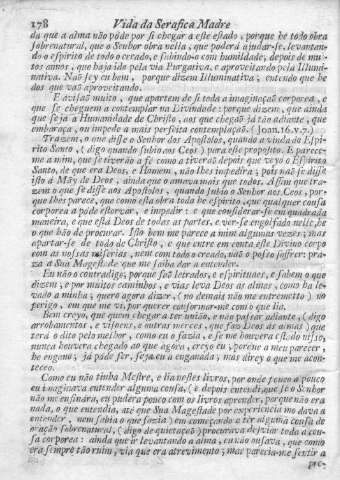 178 Vida da Serafica Madre
da que a alma não póde por si chegar a este estado, porque he todo obra
sobrenatural, que o Senhor obra nella, que poderá ajudar-se, levantan-
do o espirito de todo o creado, e subindo-o com humildade, depois de mui-
tos annos, que haja ido pela via Purgativa, e aproveitando pela Illumi-
nativa. Naõ sey eu bem, porque dizem Illuminativa; entendo que he
dos que vaõ aproveitando.
E avisaõ muito, que apartem de si toda a imaginaçaõ corporea, e
que se cheguem a contemplar na Divindade: porque dizem, que ainda
que seja a Humanidade de Christo, aos que chegaõ já taõ adiante, que
embaraça, ou impede a mais perfeita contemplaçaõ. (Joan.16.v.7.)
Trazem, o que disse o Senhor aos Apostolos, quando a vinda do Espi-
rito Santo, (digo quando subio aos Ceos) para este proposito. E parece-
me a mim, que se tiveraõ a fé como a tiveraõ depois que veyo o Espirito
Santo, de que era Deos, e Homem, não lhes impedira; pois naõ se disse
isto á Mãy de Deos, ainda que o amava mais que todos. Assim que tra-
zem o que se disse aos Apostolos, quando subio o Senhor aos Ceos, por-
que lhes parece, que como esta obra toda he espirito, que qualquer cousa
corporea a póde estorvar, e impedir: e que considerar-se em quadrada
maneira, e que está Deos de todas as partes, e ver-se engolfado nelle, he
o que haõ de procurar. Isto bem me parece a mim algumas vezes; mas
apartar-se de todo de Christo, e que entre em conta este Divino corpo
com as nossas miserias, nem com todo o creado, naõ o posso soffrer: pra-
za a Sua Magestade que me saiba dar a entender.
Eu não o contradigo, porque saõ letrados, e espirituaes, e sabem o que
dizem, e por muitos caminhos, e vias leva Deos as almas, como ha le-
vado a minha; quero agora dizer, (no demais não me entremetto) no
perigo, em que me vi, por querer conformar-me com o que lia.
Bem creyo, que quem chegar a ter união, e não passar adiante, (digo
arrobamentos, e visoens, e outras merces, que faz Deos ás almas) que
terá o dito pelo melhor, como eu o fazia, e se me houvera estado nisso,
nunca houvera chegado ao que agora, creyo eu, porque a meu parecer,
he engano; já póde ser, seja eu a enganada; mas direy o que me acon-
teceo.
Como eu não tinha Mestre, e lia nestes livros, por onde pouco a pouco
eu imaginava entender alguma cousa, (e depois entendi, que se o Senhor
não me ensinára, eu pudera pouco com os livros aprender, porque não era
nada, o que entendia, até que Sua Magestade por experiencia mo dava a
entender, nem sabia o que fazia) em começando a ter alguma cousa de
oração sobrenatural, (digo de quietação) procurava desviar toda a cou-
sa corporea: ainda que ir levantando a alma, eu não ousava, que como
era sempre tão ruim, via que era atrevimento; mas parecia-me sentir a
pre-